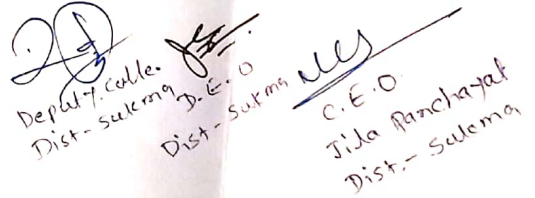 Deputy. Colle.
Dist- Sukma
D.E.O
Dist- Sukma
C.E.O.
Jila Panchayat
Dist.- Sukma